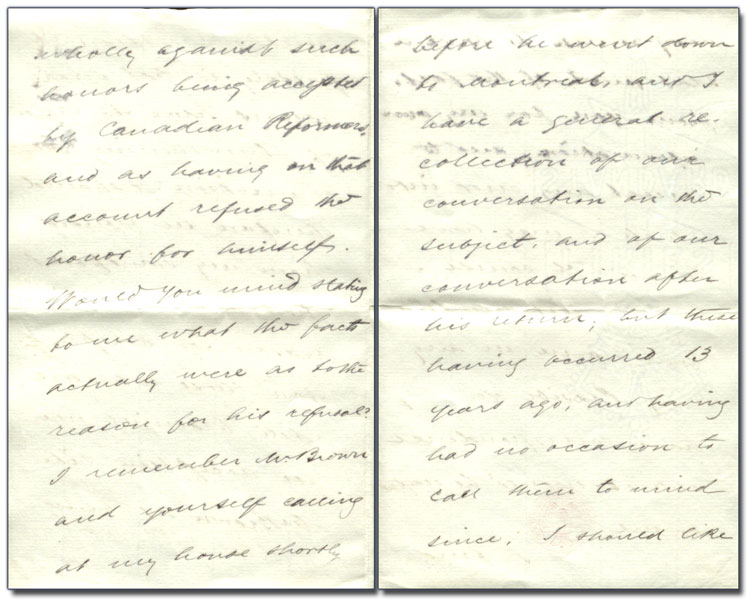 wholly against such
honors being accepted
by Canadian Reformers,
and as having on that
account refused the
honor for himself.
Would you mind stating
to me what the facts
actually were as to the
reason for his refusal?
I remember Mr. Brown
and yourself calling
at my house shortly
before he went down
to Montreal, and I
have a general re-
collection of our
conversation on the
subject, and of our
conversation after
his return; but these
having occurred 13
years ago, and having
had no occasion to
call them to mind
since, I should like